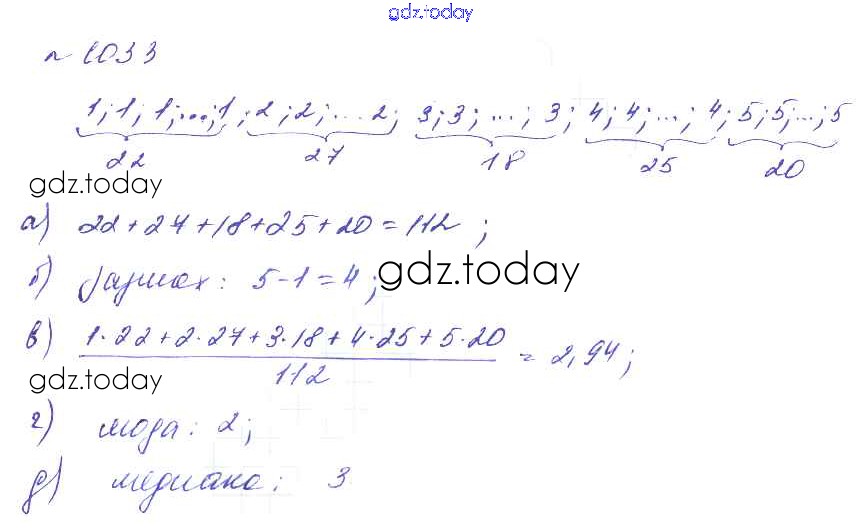 gdz.today
№ 1033
1; 1; 1; ...; 1; 2; 2; ... 2; 3; 3; ...; 3; 4; 4; ...; 4; 5; 5; ...; 5
22 27 18 25 20
gdz.today
а) 22 + 27 + 18 + 25 + 20 = 112 ;
б) размах: 5 - 1 = 4 ; gdz.today
в) 1·22 + 2·27 + 3·18 + 4·25 + 5·20
112
= 2,94;
gdz.today
г) мода: 2;
д) медиана: 3